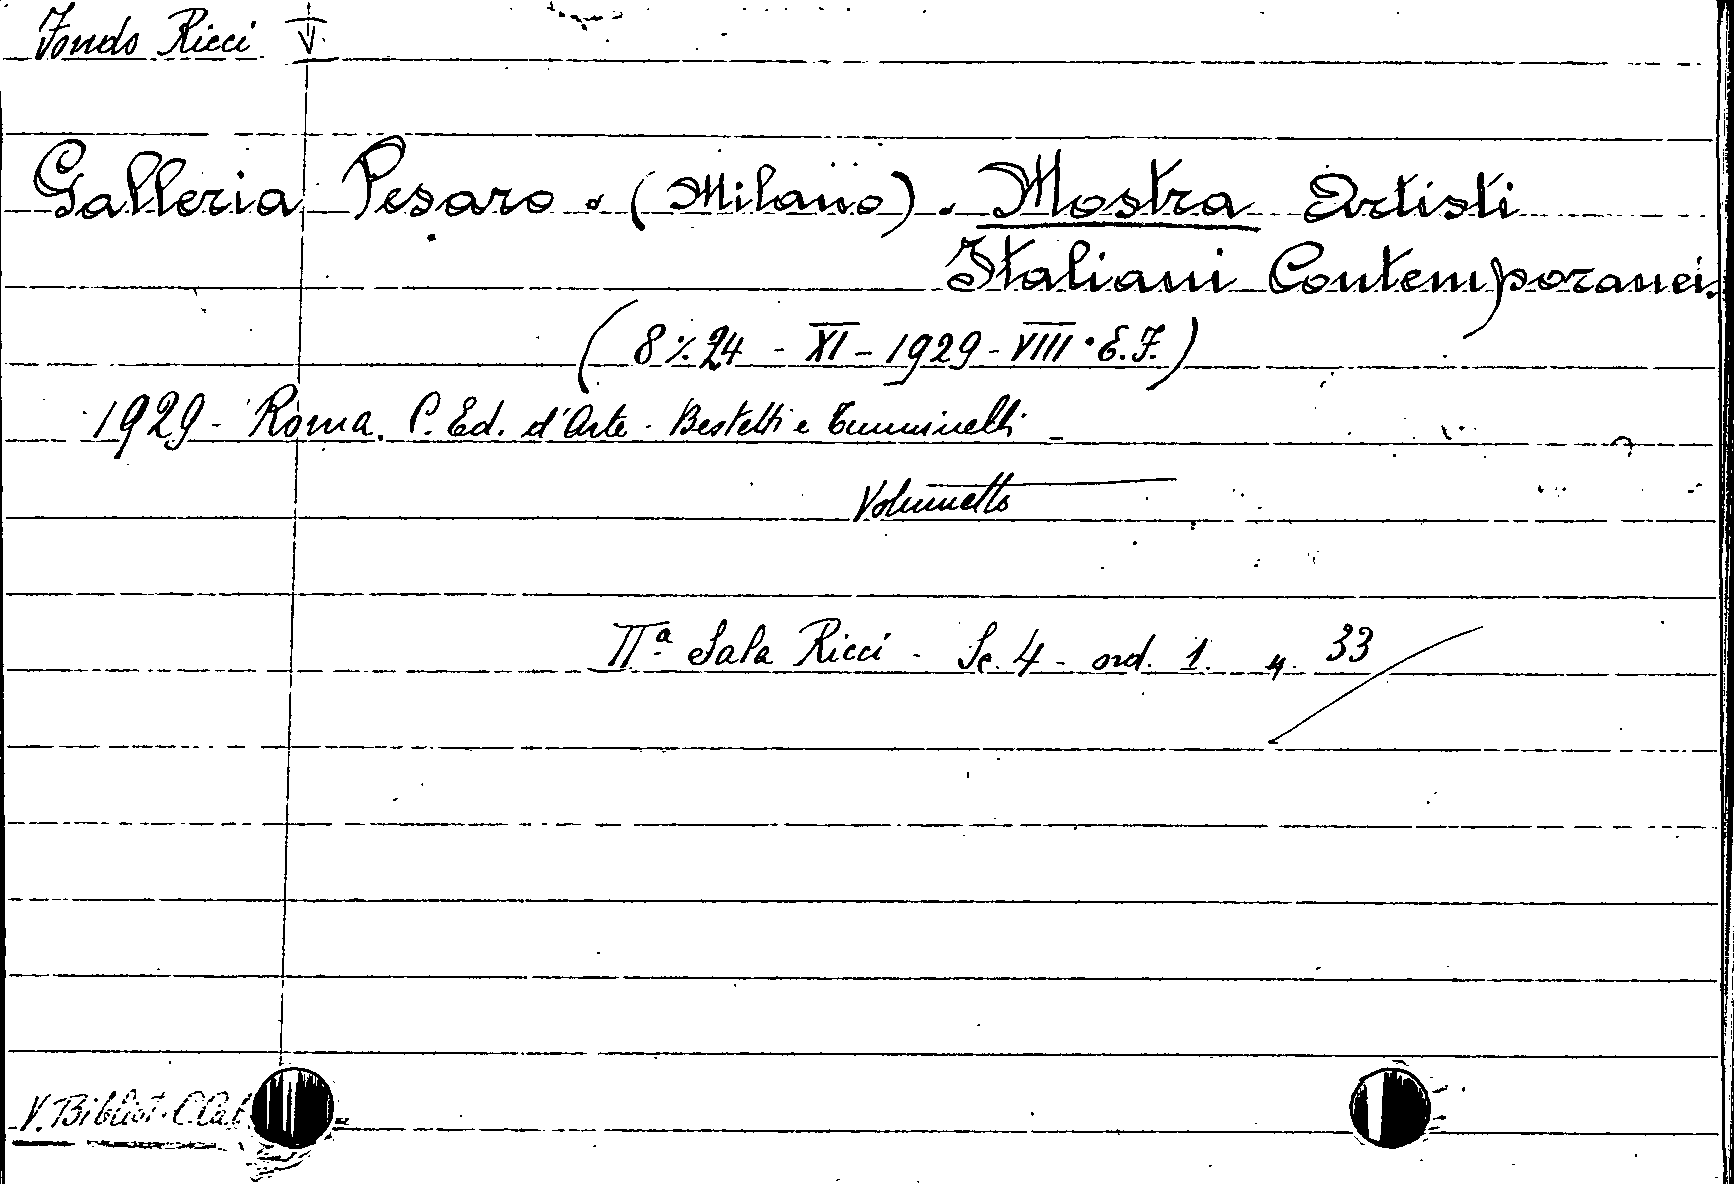 Fondo Ricci
Galleria Pesaro. (Milano). Mostra Artisti
Italiani Contemporanei.
(8 % 24 - XI - 1929 - VIII · E.F.)
1929 - Roma. C. Ed. d'Arte - Bestetti e Tumminelli -
Volumetto
IIª Sala Ricci - Sc. 4 - ord. 1. n. 33
V. Bibliot.